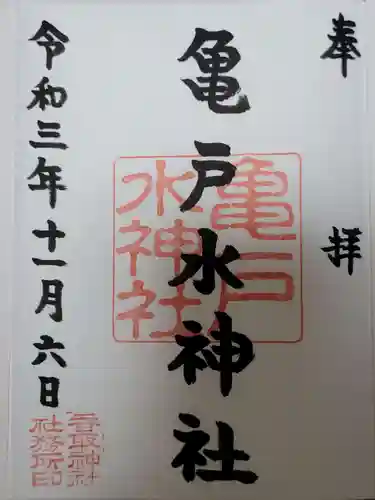 奉拝
亀戸水神社
亀戸
水神社
令和三年十一月六日
香取神社
社務所印